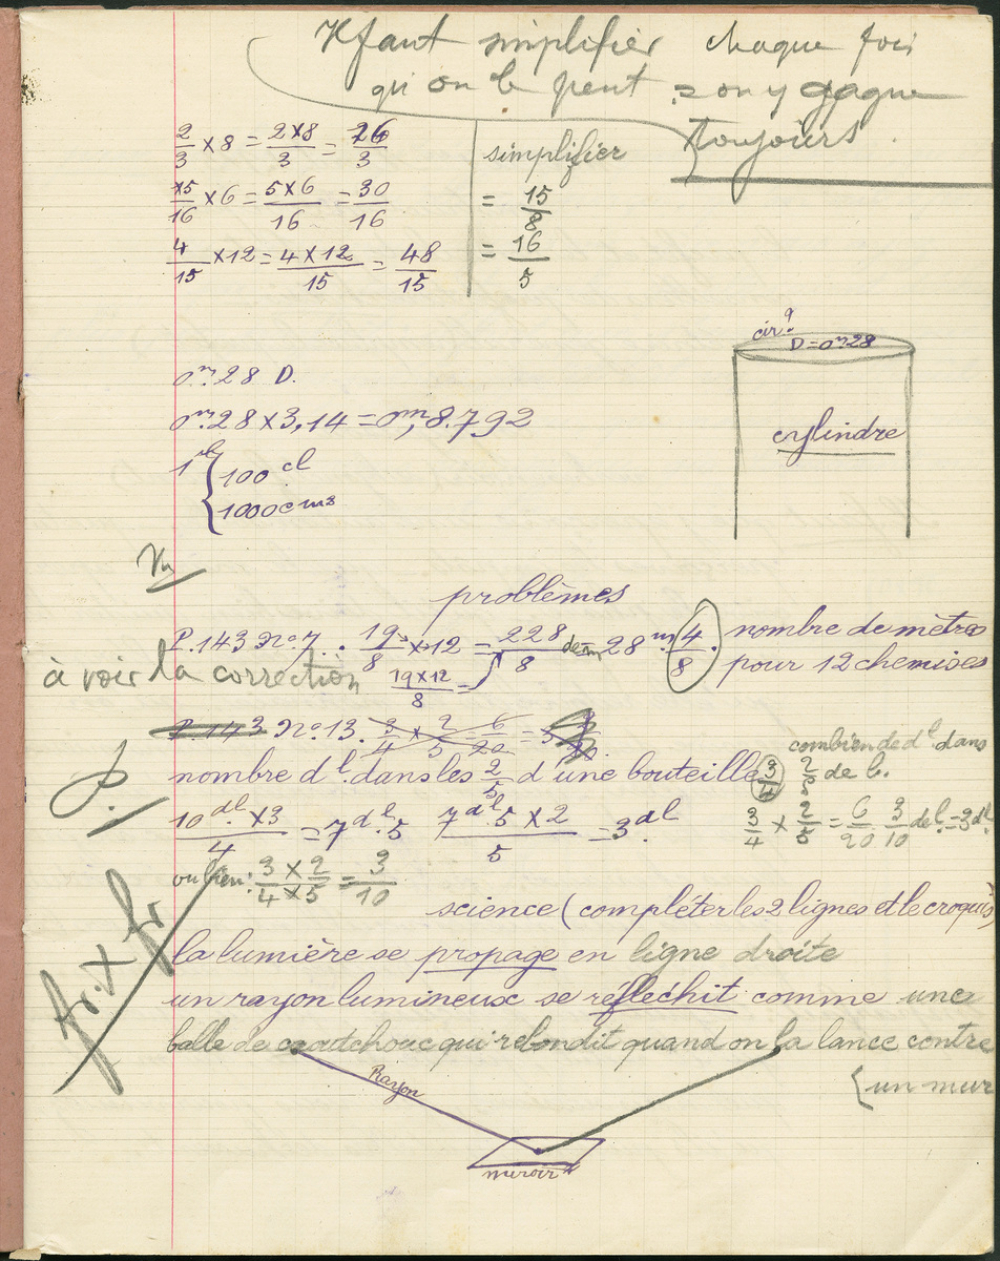 Il faut simplifier chaque fois
qu'on le peut = on y gagne
toujours.
2/3 × 8 = 2×8/3 = 26/3
simplifier
15/16 × 6 = 5×6/16 = 30/16
= 15/8
4/15 × 12 = 4×12/15 = 48/15
= 16/5
cir. ?
D = 0m28
0m28 D.
0m28 × 3,14 = 0m,8.792
cylindre
1l { 100 cl
1000 cm3
Vu
problèmes
P. 143 no 7. 19/8 × 12 = 228/8 de m 28m 4/8. nombre de mètres
pour 12 chemises
à voir la correction
19×12/8 =
P. 143 no 13. 3/4 × 2/5 = 6/20 = 3
combien de dl dans
nombre dl. dans les 2/5 d'une bouteille 3/4
2/5 de l.
10dl × 3/4 = 7dl.5 7dl5 × 2/5 = 3dl
3/4 × 2/5 = 6/20 3/10 de l. = 3dl
ou bien : 3×2/4×5 = 3/10
fr. × fr
science ( compléter les 2 lignes et le croquis)
la lumière se propage en ligne droite
un rayon lumineux se réfléchit comme une
balle de caoutchouc qui rebondit quand on la lance contre
( un mur
Rayon
miroir